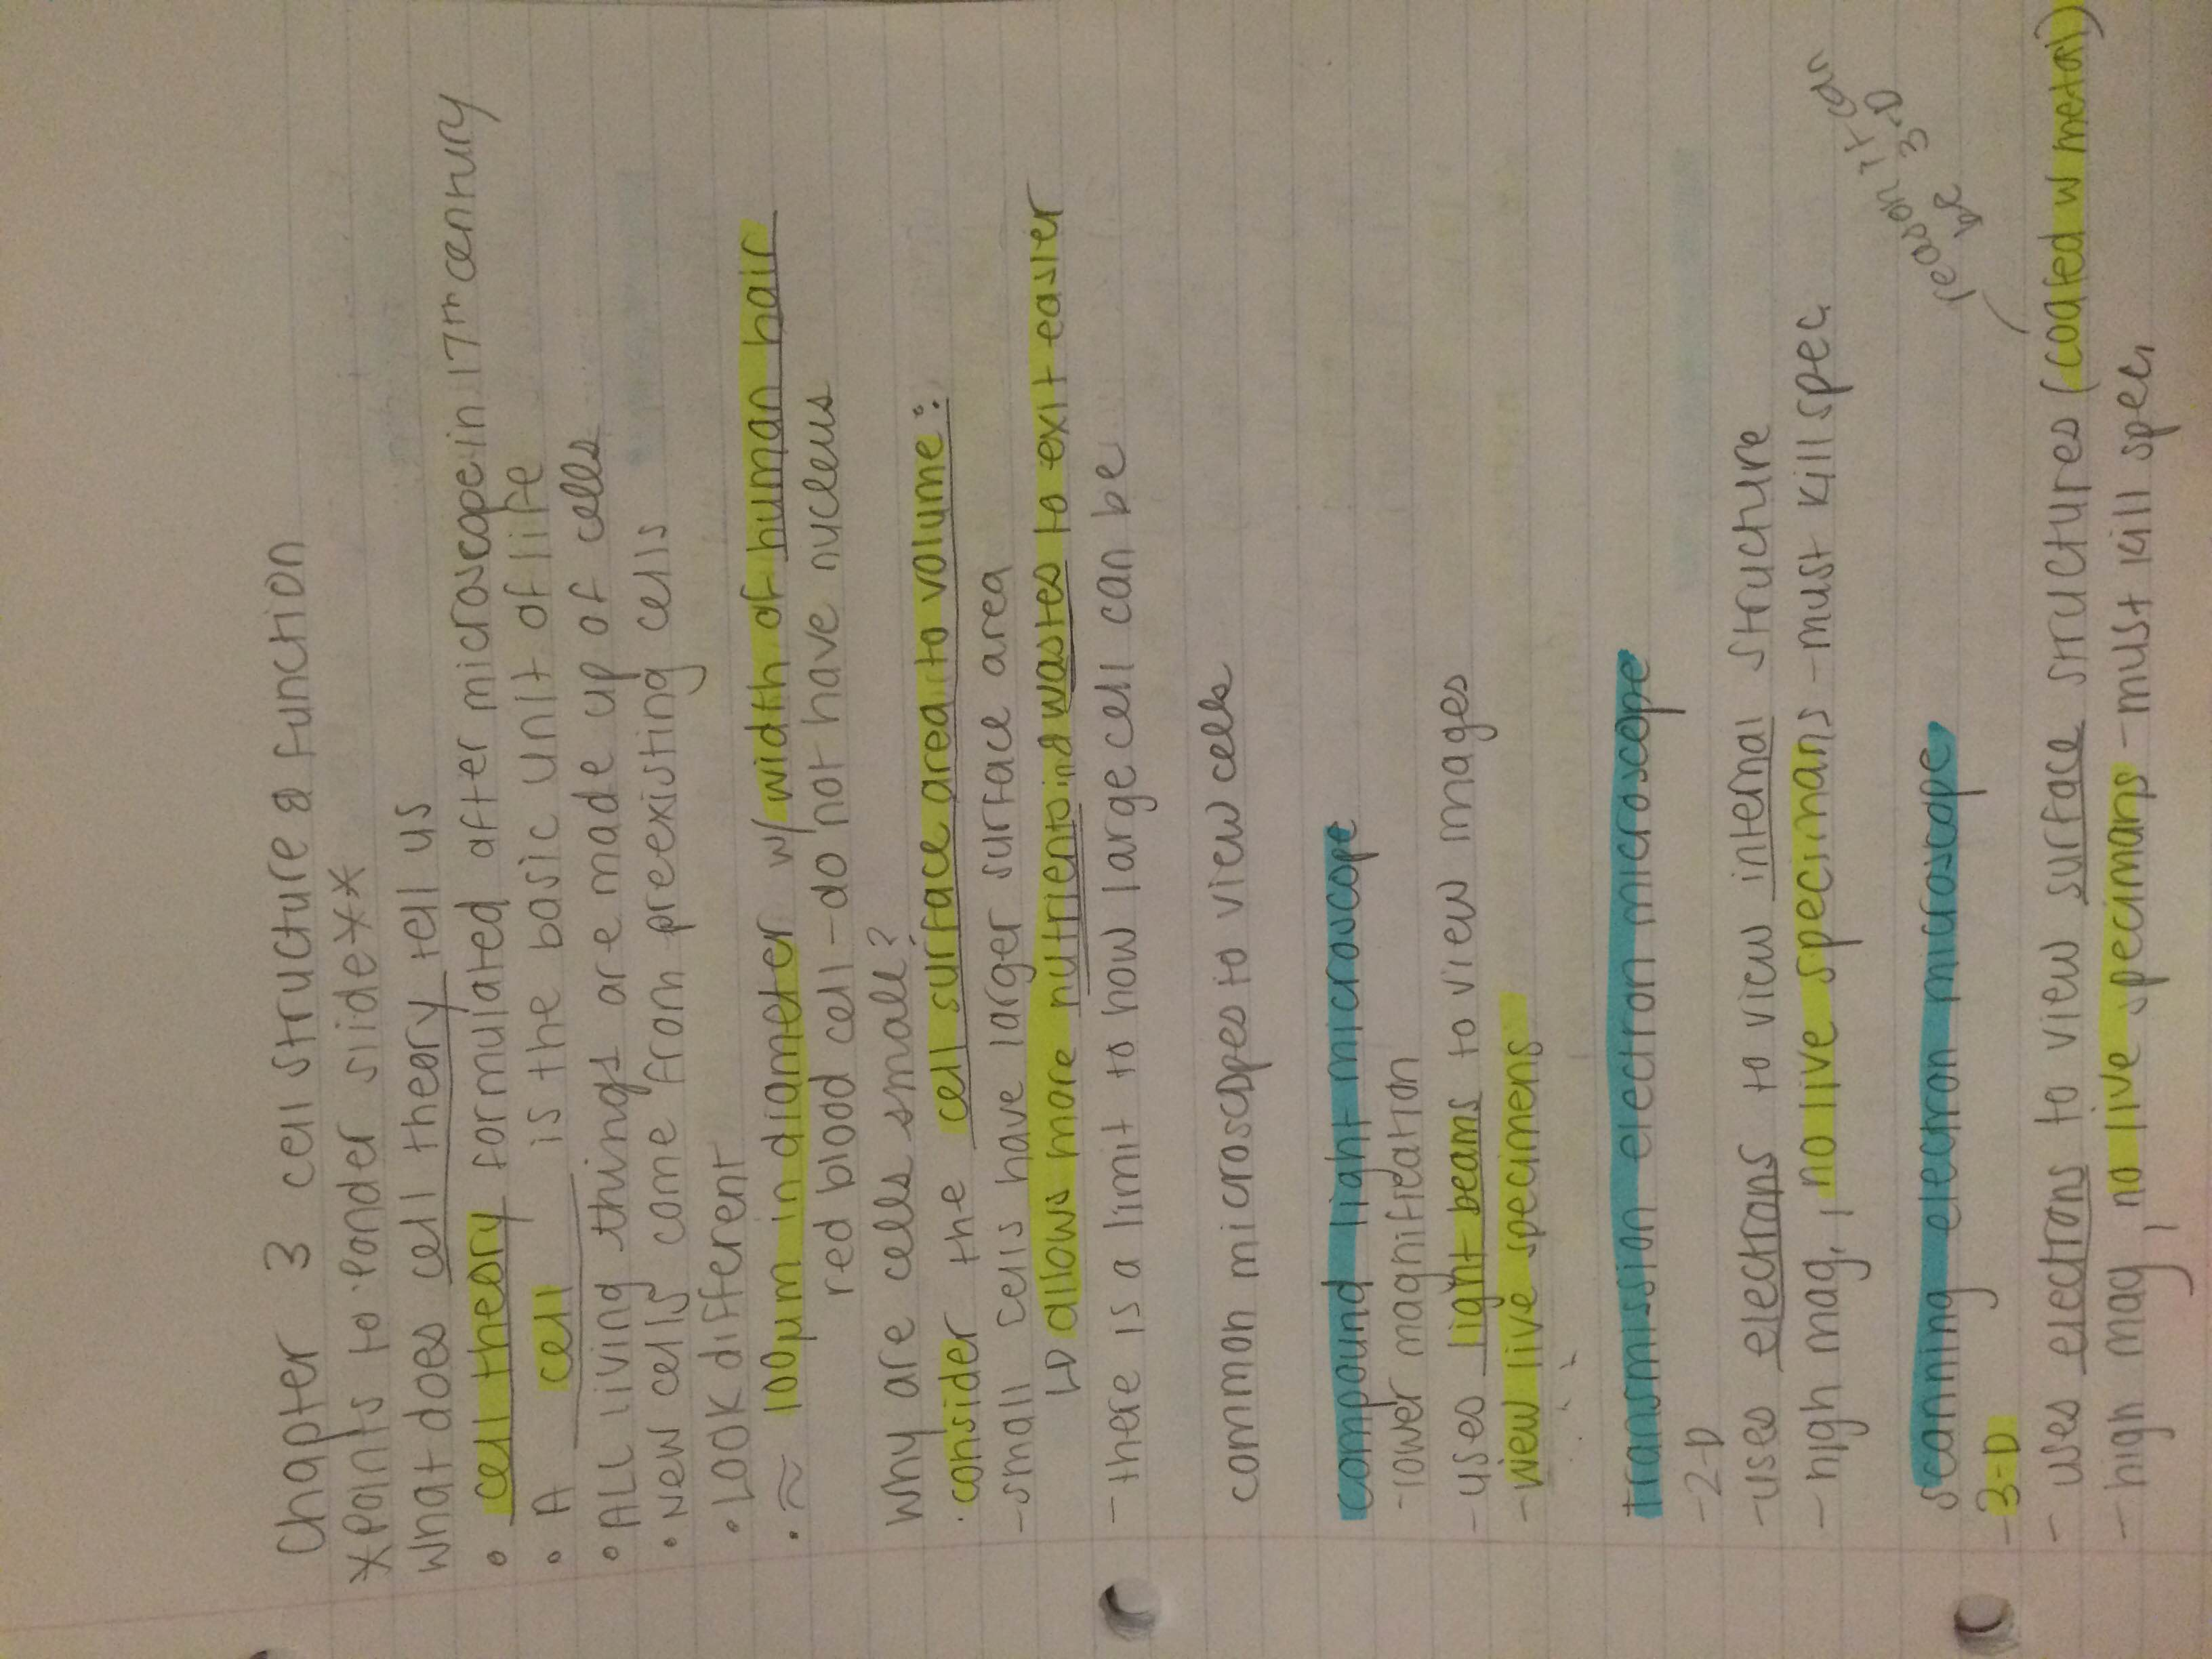 Chapter 3 cell structure & function
*Points to Ponder slide**
What does cell theory tell us
• cell theory formulated after microscope in 17th century
• A cell is the basic unit of life
• ALL living things are made up of cells
• New cells come from preexisting cells
• Look different
• ≈ 100µm in diameter w/ width of human hair
red blood cell - do not have nucleus
Why are cells small?
• consider the cell surface area to volume:
- small cells have larger surface area
↳ allows more nutrients in & wastes to exit easier
- there is a limit to how large cell can be
common microscopes to view cells
compound light microscope
- lower magnification
- uses light beams to view images
- view live specimens
transmission electron microscope
- 2-D
- uses electrons to view internal structure
- high mag, no live specimans - must kill spec.
scanning electron microscope
- 3-D
reason it can
be 3-D
- uses electrons to view surface structures (coated w metal)
- high mag, no live specimans - must kill spec.